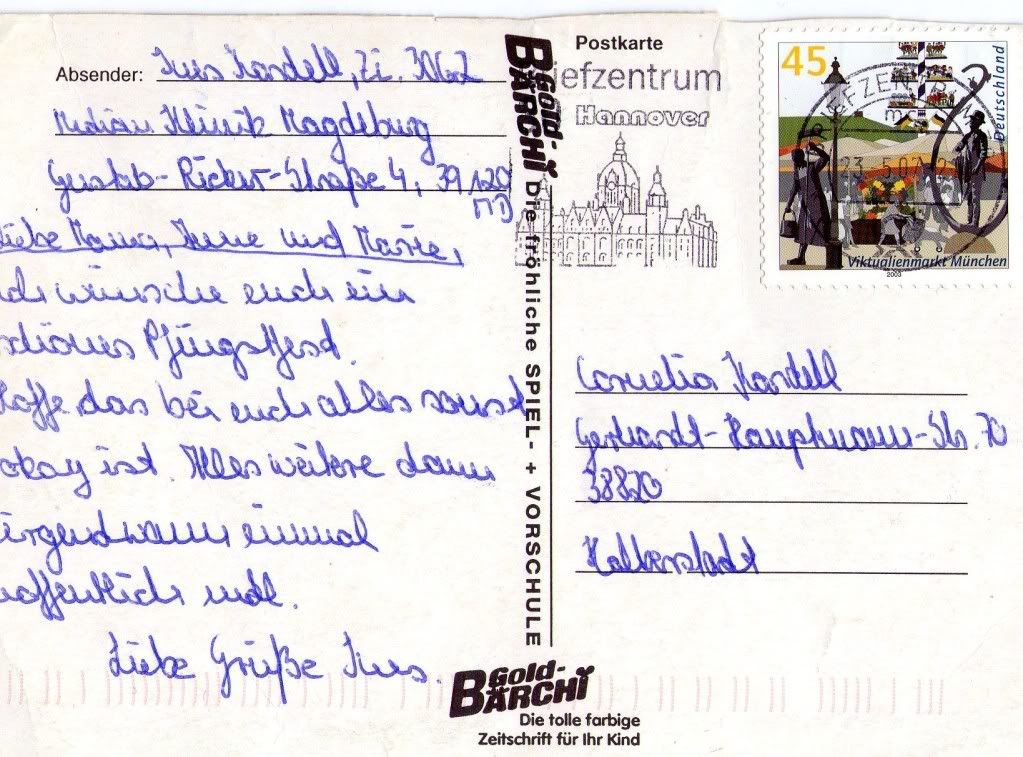 Absender: Ines Kardell, Zi. 306.2
Median Klinik Magdeburg
Gustab-Ricker-Straße 4, 39120
MD
Liebe Mama, Anne und Marie,
ich wünsche euch ein
schönes Pfingstfest.
Hoffe das bei euch alles sonst
okay ist. Alles weitere dann
irgendwann einmal
hoffentlich mdl.
Liebe Grüße Ines.
Gold-
BÄRCHI
Die fröhliche SPIEL- + VORSCHULE
Postkarte
iefzentrum
Hannover
45
Deutschland
Viktualienmarkt München
2003
Cornelia Kardell
Gerhardt-Hauptmann-Str. 70
38820
Halberstadt
Gold-
BÄRCHI
Die tolle farbige
Zeitschrift für Ihr Kind